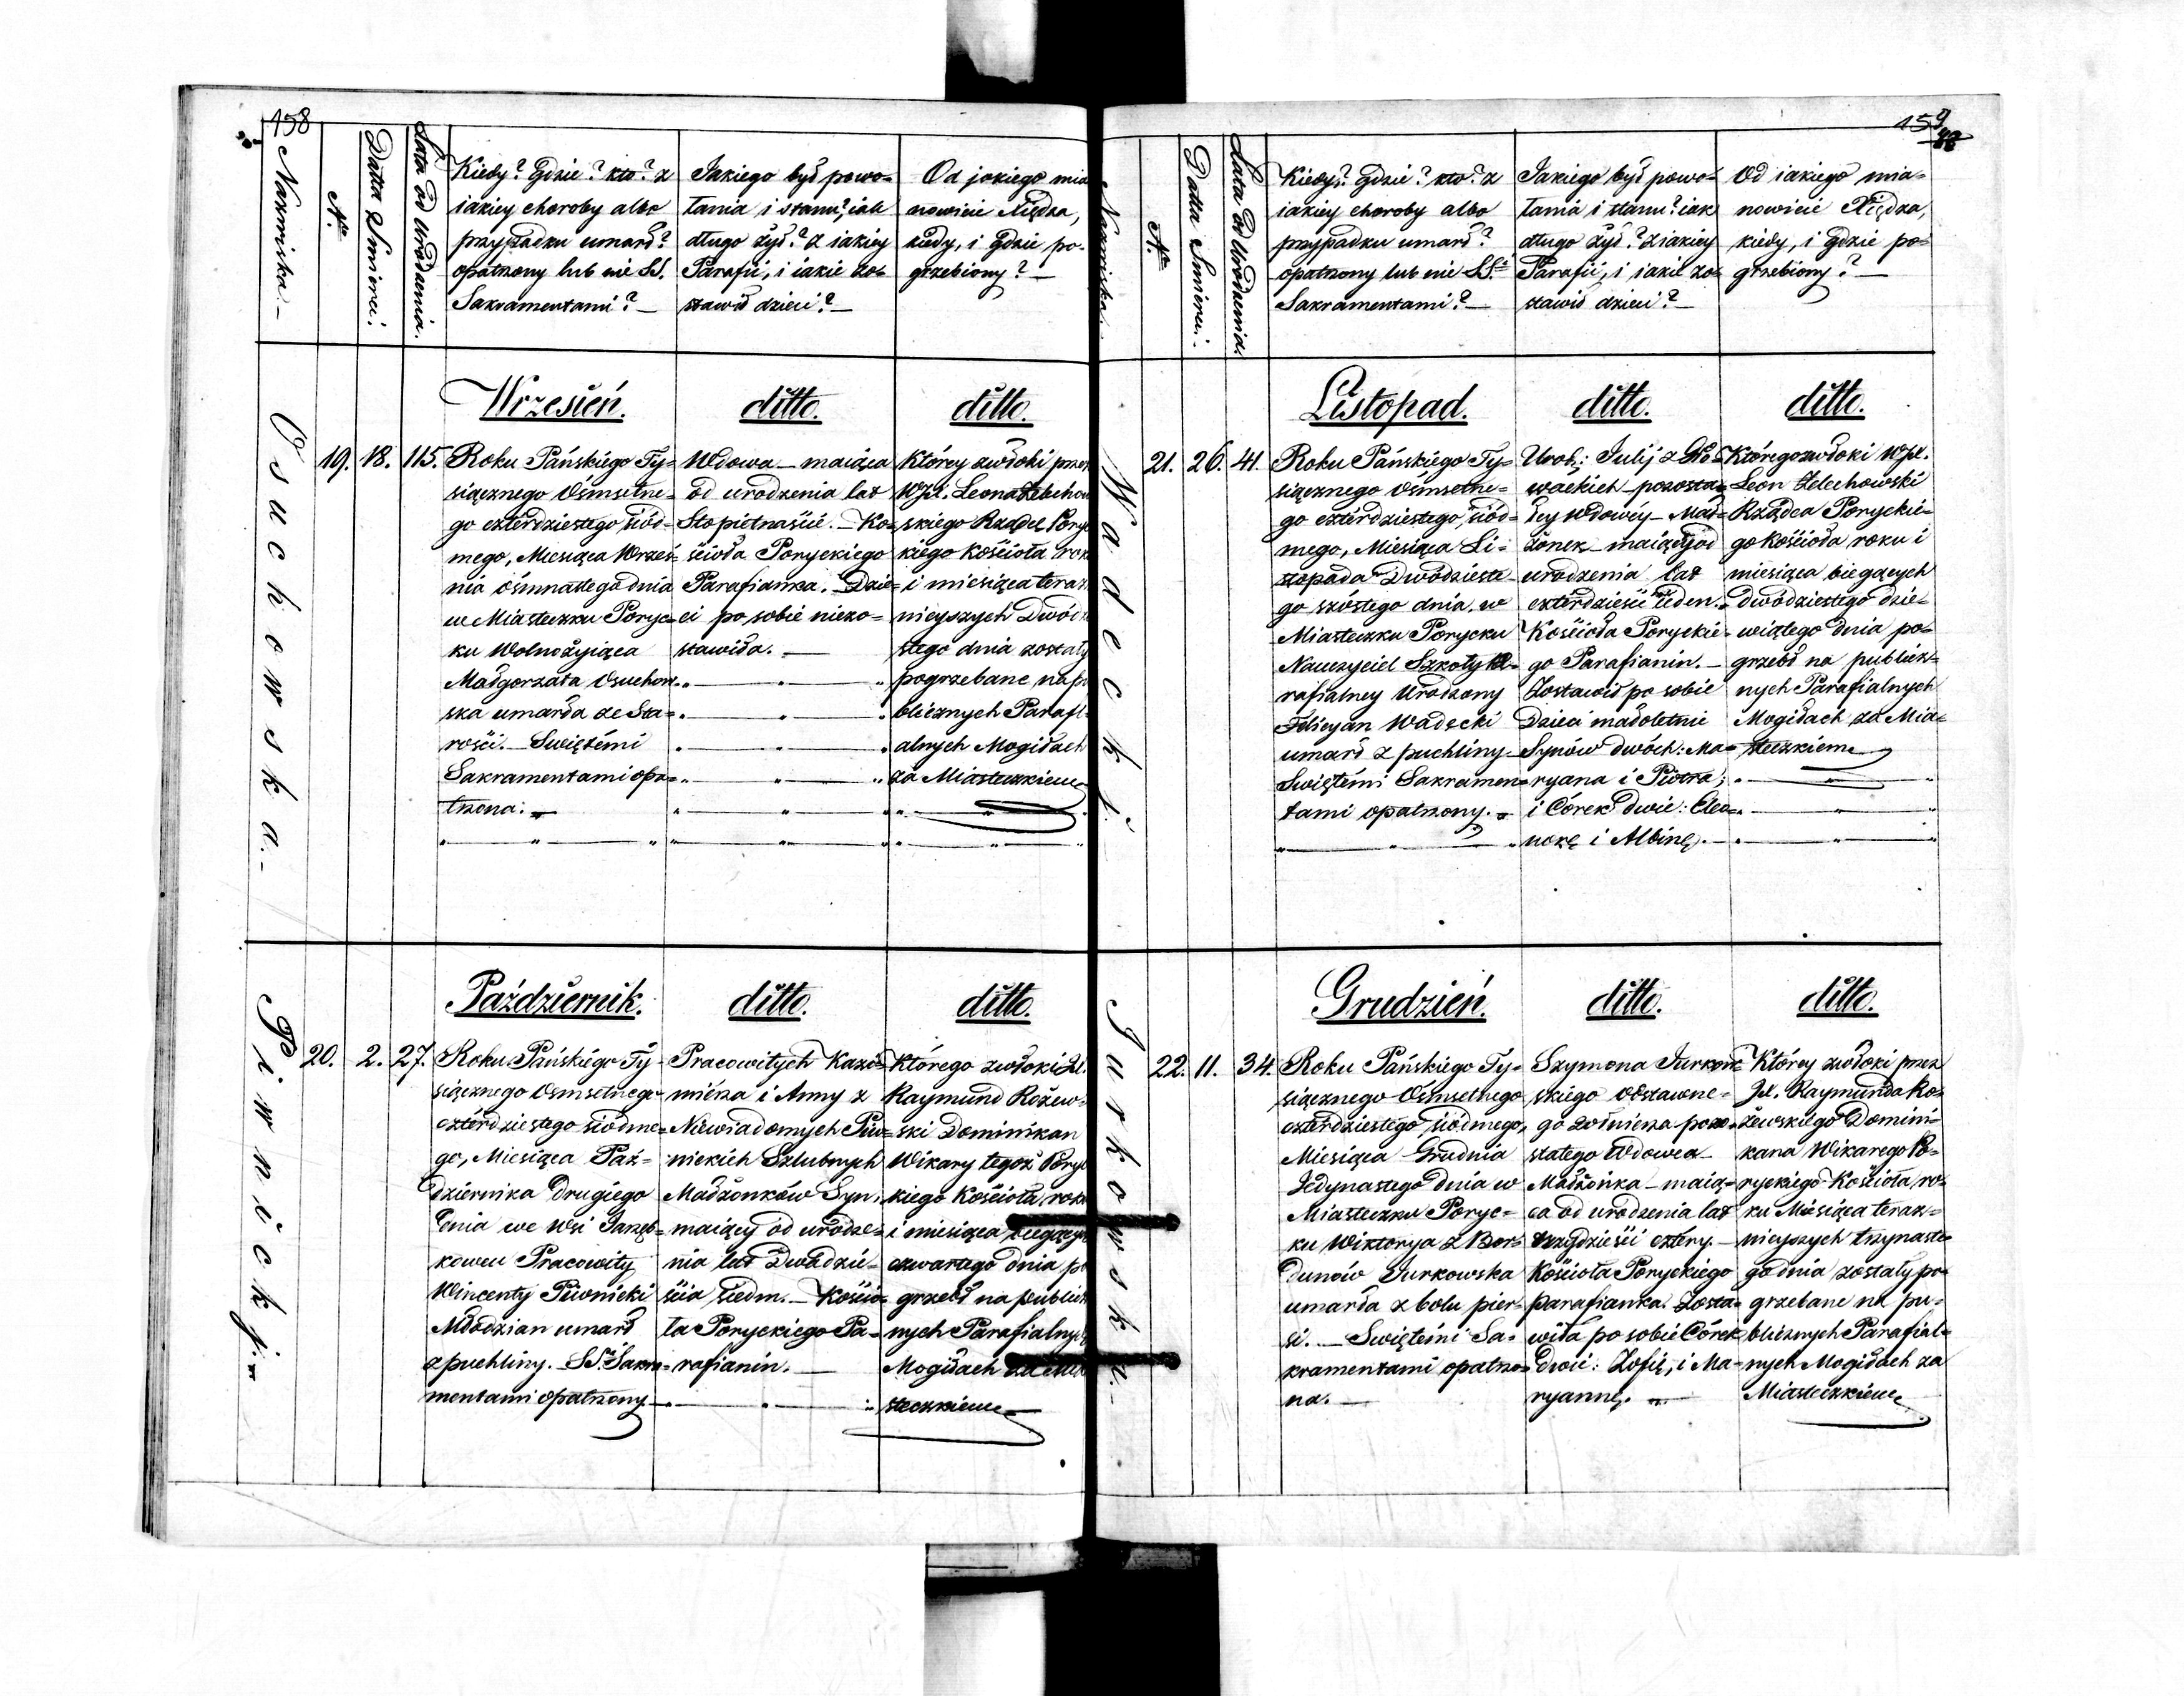 158
Nazwiska.
N.ro
Datta Smierci.
Lata od Urodzenia.
Kiedy? Gdzie? kto? z
iakiey choroby albo
przypadku umarł?
opatrzony lub nie SS.
Sakramentami? —
Jakiego był powo=
łania i stanu? iak
długo żył? z iakiey
Parafii, i iakie zo=
stawił dzieci? —
Od jakiego mia
nowicie Xiędza,
kiedy, i gdzie po=
grzebiony? —
Osuchowska.
Wrzesień.
ditto.
ditto.
19.
18.
115.
Roku Pańskiego Ty=
siącznego Ośmsetne=
go czterdziestego siód=
mego, Miesiąca Wrześ=
nia ośmnastego dnia
w Miasteczku Poryc=
ku Wolnożyiąca
Małgorzata Osuchow=
ska umarła ze Sta=
rości. — Swiętémi
Sakramentami opa=
trzona. —
Wdowa — maiąca
od urodzenia lat
Sto pietnaście. — Ko=
ścioła Poryckiego
Parafianka. Dzie=
ci po sobie niezo=
stawiła. —
Którey zwłoki przez
WJX. Leona Zelechow
skiego Rządcę Poryc
kiego Kościoła roku
i miesiąca teraz
nieyszych Dwódzie
stego dnia zostały
pogrzebane na pu
blicznych Parafi=
alnych Mogiłach
za Miasteczkiem
Piwnicki.
Październik.
ditto.
ditto.
20.
2.
27.
Roku Pańskiego Ty=
siącznego Ośmsetnego
czterdziestego siódme=
go, Miesiąca Paź=
dziernika Drugiego
dnia we Wsi Jarzęb=
kowcu Pracowity
Wincenty Piwnicki
Młodzian umarł
z puchliny. — SS. Sakra=
mentami opatrzony. —
Pracowitych Kazi=
miérza i Anny z
Niewiadomych Piw=
nickich Szlubnych
Małżonków Syn,
maiący od urodze=
nia lat Dwadzie=
ścia siedm. — Kościo=
ła Poryckiego Pa=
rafianin. —
Którego zwłoki JX.
Raymund Rożew=
ski Dominikan
Wikary tegoż Poryc
kiego Kościoła, roku
i miesiąca bieżących
czwartego dnia po
grzebł na publicz
nych Parafialnych
Mogiłach za Mia
steczkiem
159
Nazwiska.
N.ro
Datta Smierci.
Lata od Urodzenia.
Kiedy? gdzie? kto? z
iakiey choroby albo
przypadku umarł?
opatrzony lub nie SS.
Sakramentami? —
Jakiego był powo=
łania i stanu? iak
długo żył? z iakiey
Parafii, i iakie zo=
stawił dzieci? —
Od iakiego mia=
nowicie Xiędza,
kiedy, i gdzie po=
grzebiony? —
Wadecki.
Listopad.
ditto.
ditto.
21.
26.
41.
Roku Pańskiego Ty=
siącznego Ośmsetne=
go czterdziestego siód=
mego, Miesiąca Li=
stopada Dwódzieste=
go szóstego dnia, w
Miasteczku Porycku
Nauczyciel Szkoły Pa=
rafialney Urodzony
Felicyan Wadecki
umarł z puchliny. —
Swiętémi Sakramen=
tami opatrzony. —
Urod: Julij z
wackich pozosta=
łey Wdowéy — Mał=
żonek — maiący od
urodzenia lat
czterdzieści ieden. —
Kościoła Poryckie=
go Parafianin. —
Zostawił po sobie
Dzieci małoletnie
Synów dwóch: Ma=
ryana i Piotra;
i Córek dwie: Eleo=
norę i Albinę. —
Którego zwłoki WJX.
Leon Zelechowski
Rządca Poryckie=
go Kościoła roku i
miesiąca bieżących
dwódziestego dzie=
wiątego dnia po=
grzebł na publicz=
nych Parafialnych
Mogiłach za Mia=
steczkiem
Jurkowska.
Grudzień.
ditto.
ditto.
22.
11.
34.
Roku Pańskiego Ty=
siącznego Ośmsetnego
czterdziestego siódmego,
Miesiąca Grudnia
Jedynastego dnia w
Miasteczku Poryc=
ku Wiktorya z Bor=
dunów Jurkowska
umarła z bolu pier=
si. — Swiętémi Sa=
kramentami opatrzo=
na. —
Szymona Jurkow=
skiego odstawne=
go żołnierza pozo=
stałego Wdowca —
Małżonka — maią=
ca od urodzenia lat
trzydzieści cztéry. —
Kościoła Poryckiego
parafianka. Zosta=
wiła po sobie Córek
dwie: Zofię, i Ma=
ryannę. —
Którey zwłoki przez
JX. Raymunda Ro=
żewskiego Domini=
kana Wikarego Po=
ryckiego Kościoła, ro=
ku Miesiąca teraz=
nieyszych trzynaste=
go dnia zostały po=
grzebane na pu=
blicznych Parafial=
nych Mogiłach za
Miasteczkiem